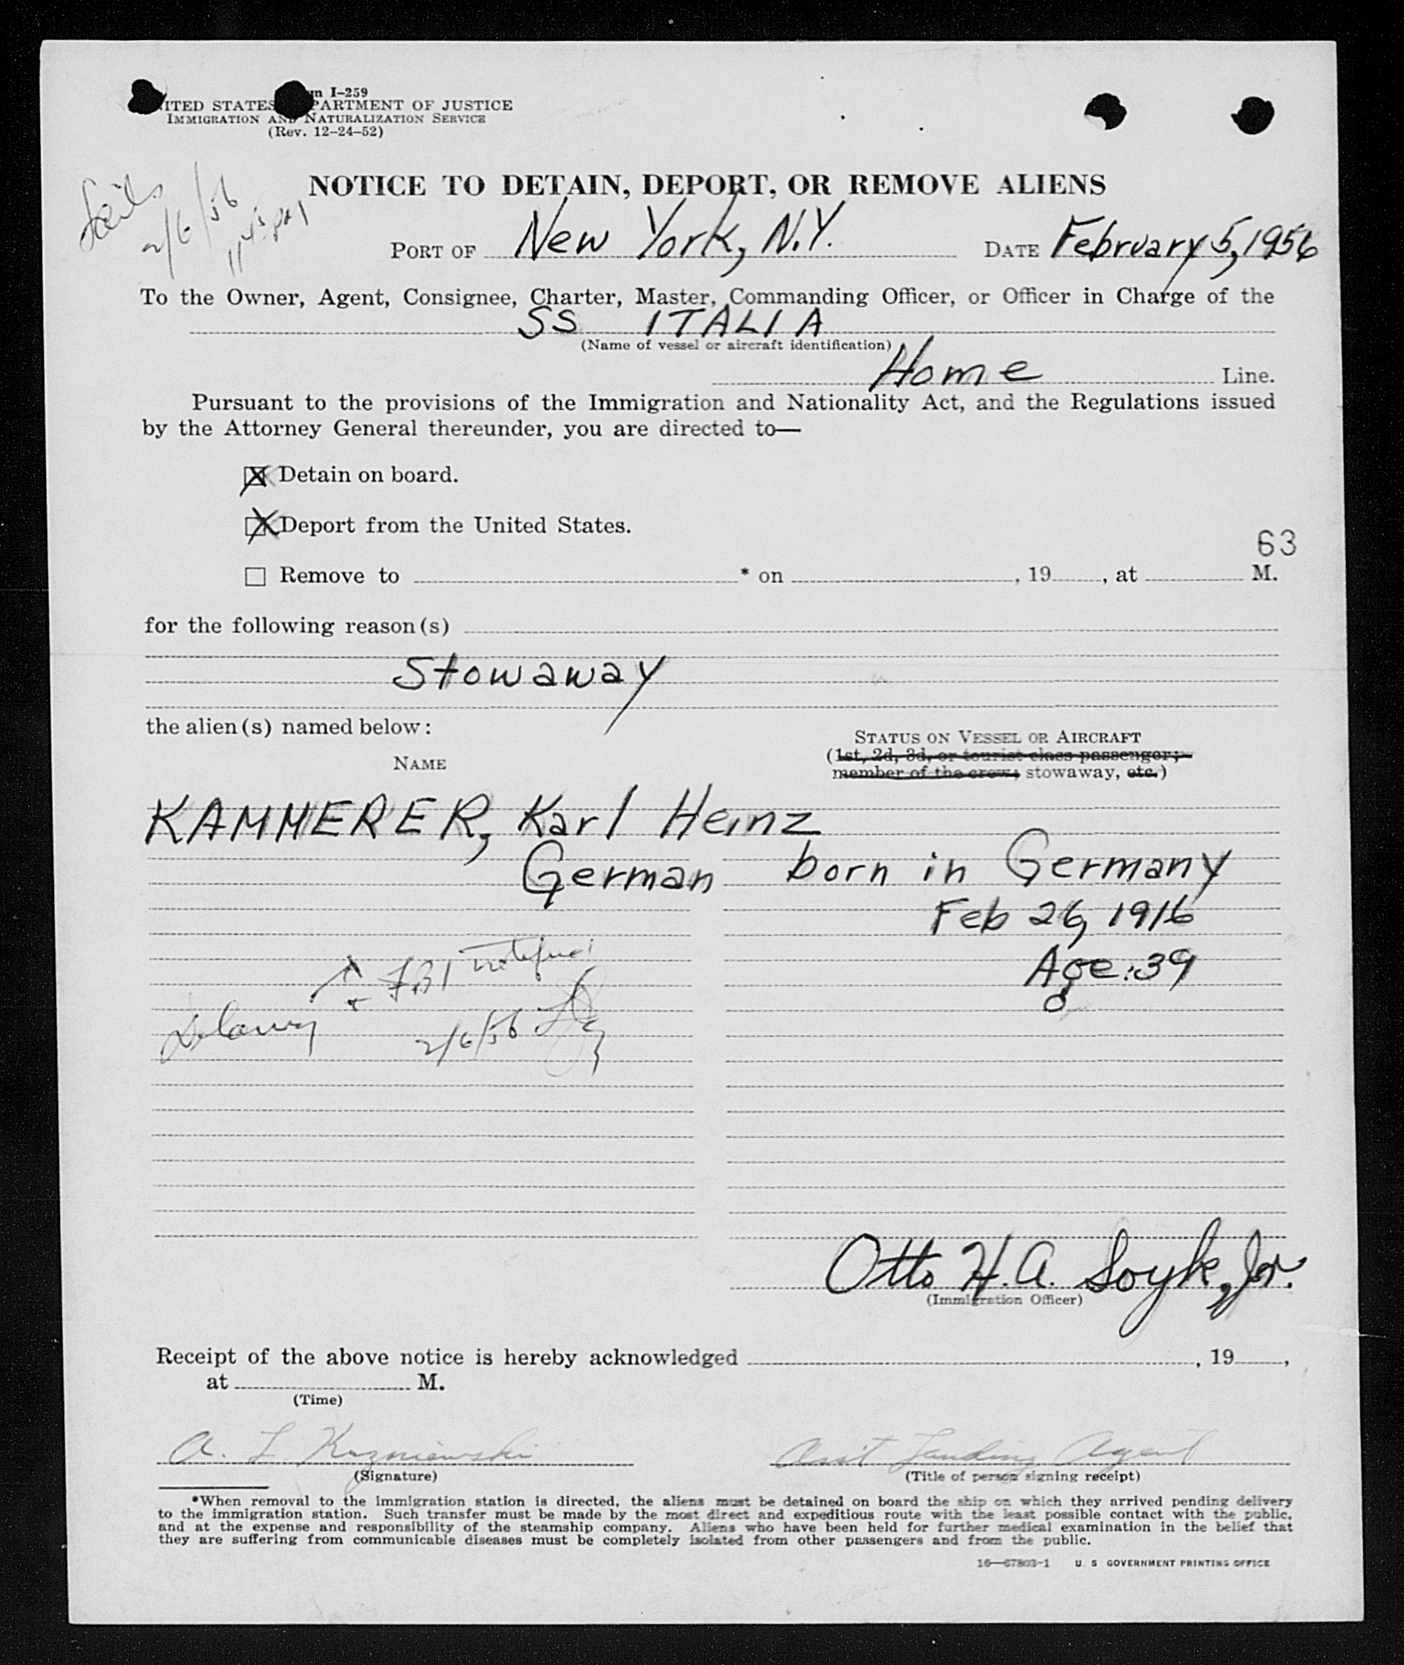 I-259
UNITED STATES DEPARTMENT OF JUSTICE
IMMIGRATION AND NATURALIZATION SERVICE
(Rev. 12-24-52)
Sails
2/6/56
1145 PM
NOTICE TO DETAIN, DEPORT, OR REMOVE ALIENS
PORT OF New York, N.Y. DATE February 5, 1956
To the Owner, Agent, Consignee, Charter, Master, Commanding Officer, or Officer in Charge of the
SS ITALIA
(Name of vessel or aircraft identification)
Home Line.
Pursuant to the provisions of the Immigration and Nationality Act, and the Regulations issued
by the Attorney General thereunder, you are directed to—
X Detain on board.
X Deport from the United States.
63
☐ Remove to * on , 19 , at M.
for the following reason(s)
Stowaway
the alien(s) named below:
STATUS ON VESSEL OR AIRCRAFT
NAME
(1st, 2d, 3d, or tourist class passenger;
member of the crew; stowaway, etc.)
KAMMERER, Karl Heinz
German born in Germany
Feb 26, 1916
Age: 39
FBI notified
2/6/56
Otto H. A. Soyk, Jr.
(Immigration Officer)
Receipt of the above notice is hereby acknowledged , 19 ,
at M.
(Time)
A. L. Kuzniewski Asst Landing Agent
(Signature) (Title of person signing receipt)
*When removal to the immigration station is directed, the aliens must be detained on board the ship on which they arrived pending delivery
to the immigration station. Such transfer must be made by the most direct and expeditious route with the least possible contact with the public,
and at the expense and responsibility of the steamship company. Aliens who have been held for further medical examination in the belief that
they are suffering from communicable diseases must be completely isolated from other passengers and from the public.
16—67803-1 U. S. GOVERNMENT PRINTING OFFICE